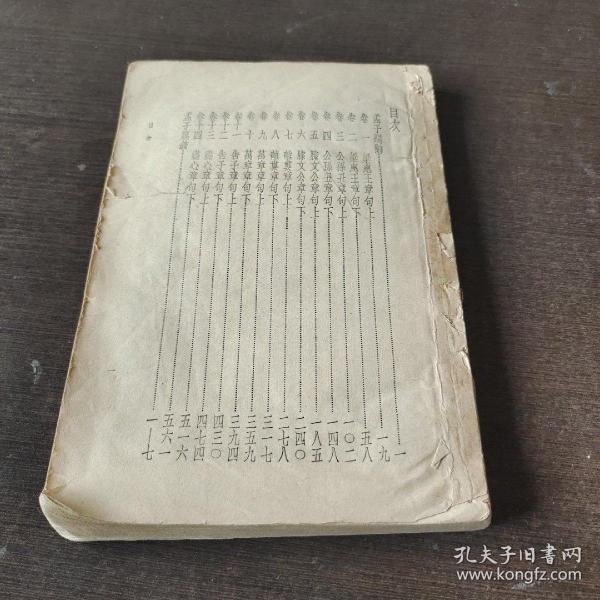 目次
孟子題辭……一
卷一 梁惠王章句上……一九
卷二 梁惠王章句下……五八
卷三 公孫丑章句上……一〇二
卷四 公孫丑章句下……一四八
卷五 滕文公章句上……一八五
卷六 滕文公章句下……二四〇
卷七 離婁章句上……二七八
卷八 離婁章句下……三一七
卷九 萬章章句上……三五九
卷十 萬章章句下……三九四
卷十一 告子章句上……四三〇
卷十二 告子章句下……四七四
卷十三 盡心章句上……五一六
卷十四 盡心章句下……五六一
孟子篇敍……一—七
目次
孔夫子旧书网
www.kongfz.com